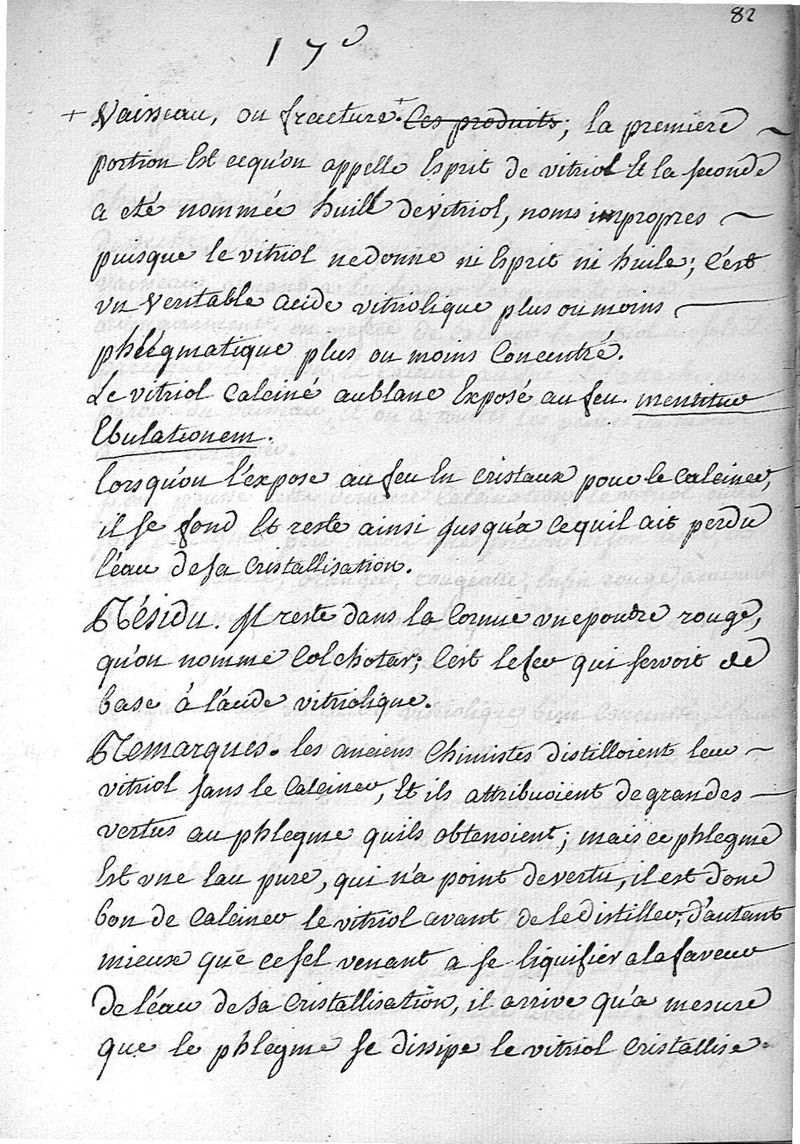 82
17
+ Vaisseau, ou fracture.+ Ces produits; la premiere ~
portion Est cequ'on appelle Esprit de vitriol Et la seconde
a eté nommée huille devitriol, noms impropres —
puisque le vitriol nedonne ni Esprit ni huile; C'est
un veritable acide vitriolique plus ou moins —
phlegmatique plus ou moins Concentré.
Le vitriol Calciné aublanc Exposé au feu
Ebulationem.
lorsqu'on l'expose au feu En cristaux pour le Calciner,
il se fond Et reste ainsi jusqu'a cequil ait perdu
l'eau de sa cristallisation.
Résidu. Il reste dans la Cornue unepoudre rouge,
qu'on nomme Colchotar; C'est lefer qui servoit de
base à l'acide vitriolique.
Remarques. les anciens Chimistes distilloient leur ~
vitriol sans le Calciner, Et ils attribuoient de grandes —
vertus au phlegme quils obtenoient; mais ce phlegme
Est une Eau pure, qui n'a point devertu, il est donc
bon de Calciner le vitriol avant de le Distiller, d'autant
mieux que ce sel venant a se liquifier a la faveur
de l'eau de sa Cristallisation, il arrive qu'a mesure
que le phlegme se dissipe le vitriol cristallise